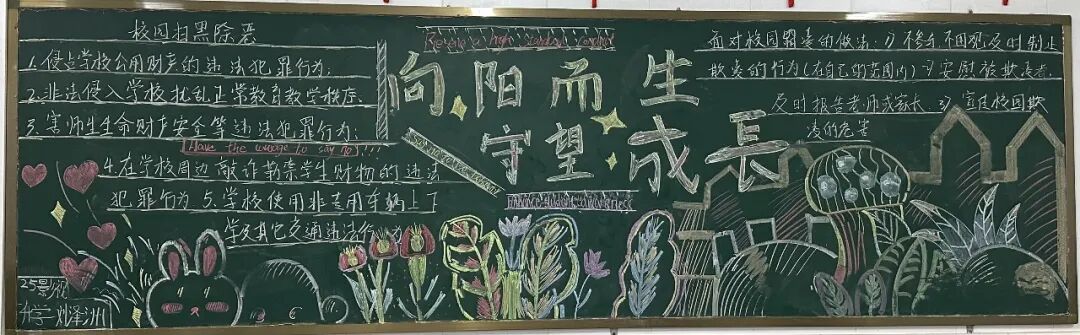 校园扫黑除恶
1.侵占学校公用财产的违法犯罪行为;
2.非法侵入学校扰乱正常教育教学秩序.
3.害师生生命财产安全等违法犯罪行为;
Have the courage to say no!!!
4.在学校周边敲诈勒索学生财物的违法
犯罪行为 5.学校使用非专用车辆上下
学及其它交通违法行为
25影视
升学 刘泽洲
向阳而生
守望成长
面对校园霸凌的做法:1)不参与不围观及时制止
欺凌的行为(在自己的范围内)2)安慰被欺凌者.
及时报告老师或家长 3)宣传校园欺
凌的危害